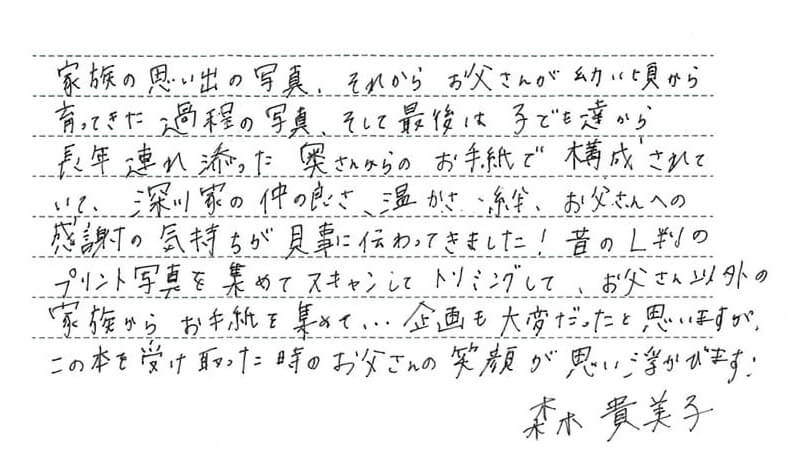 家族の思い出の写真、それから お父さんが幼い頃から
育ってきた過程の写真、そして最後は 子ども達から
長年 連れ添った 奥さんからの お手紙で 構成されて
いて、深川家の仲の良さ、温かさ、絆、お父さんへの
感謝の気持ちが見事に伝わってきました!昔のL判の
プリント写真を集めてスキャンしてトリミングして、お父さん以外の
家族から お手紙を集めて...企画も大変だったと思いますが、
この本を受け取った時のお父さんの笑顔が思い浮かびます!
森 貴美子